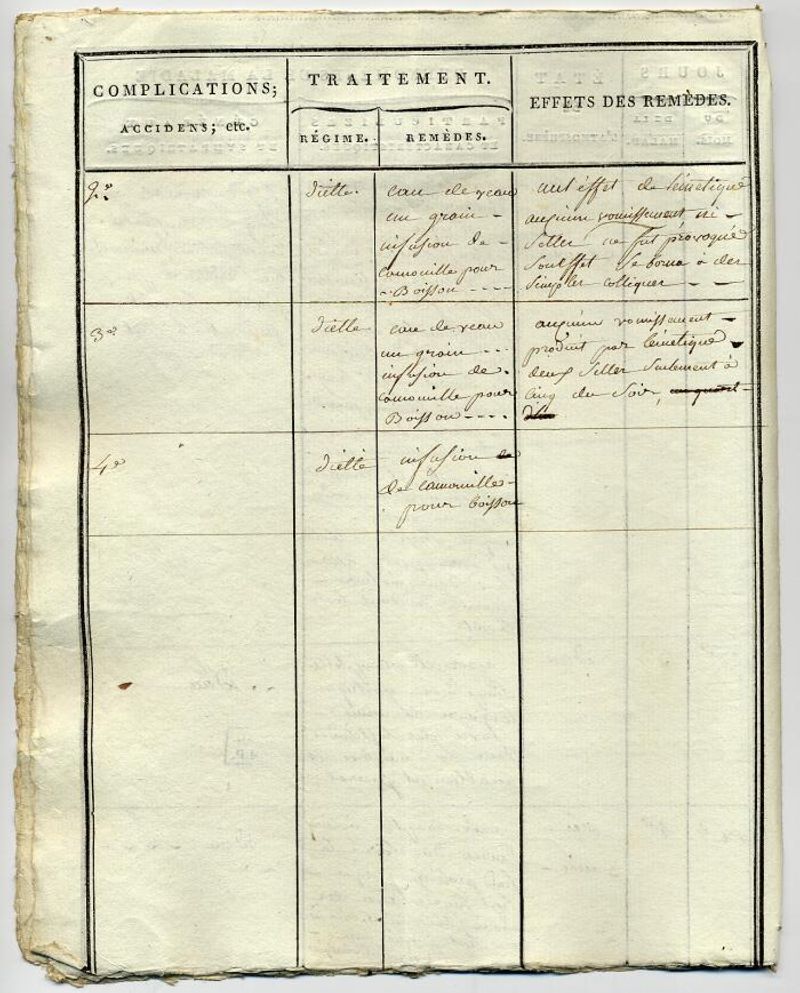 COMPLICATIONS;
ACCIDENS; etc.
TRAITEMENT.
RÉGIME.
REMÈDES.
EFFETS DES REMÈDES.
2.e
diette.
eau de veau
un grain -
infusion de -
camomille pour
- Boisson - - - -
nul effet de l'émetique
auqu'un vomissement ni -
Seller ne fut provoqué
Soneffet se borna à des
Simples colliques - -
3.e
diette
eau de veau
un grain - - -
infusion de -
camomille pour
Boisson - - - -
auqu'un vomissement -
produit par l'émetique
deux Seller Seulement à
Cinq du Soir,
4.e
diètte
infusion
de Camomille -
pour boisson